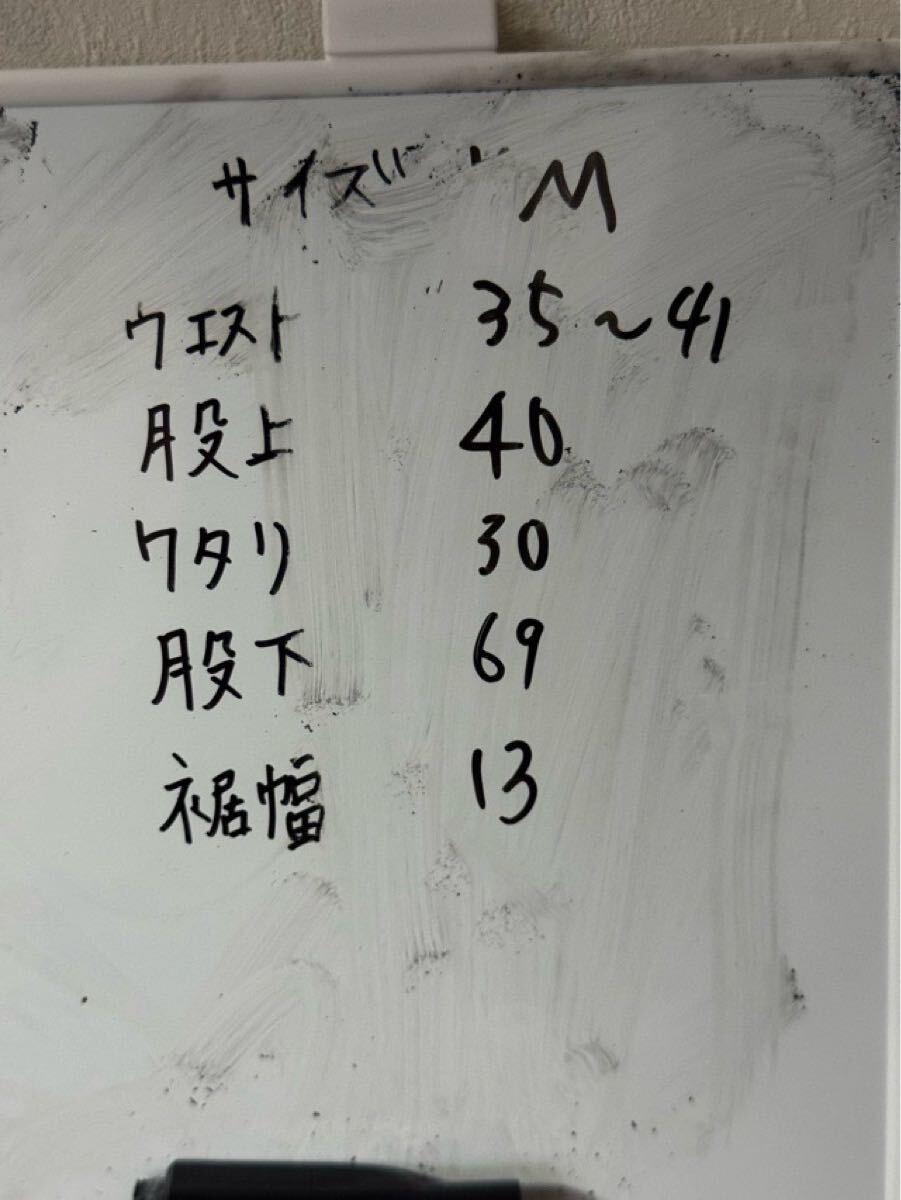 サイズ M
ウエスト 35～41
股上 40
ワタリ 30
股下 69
裾幅 13